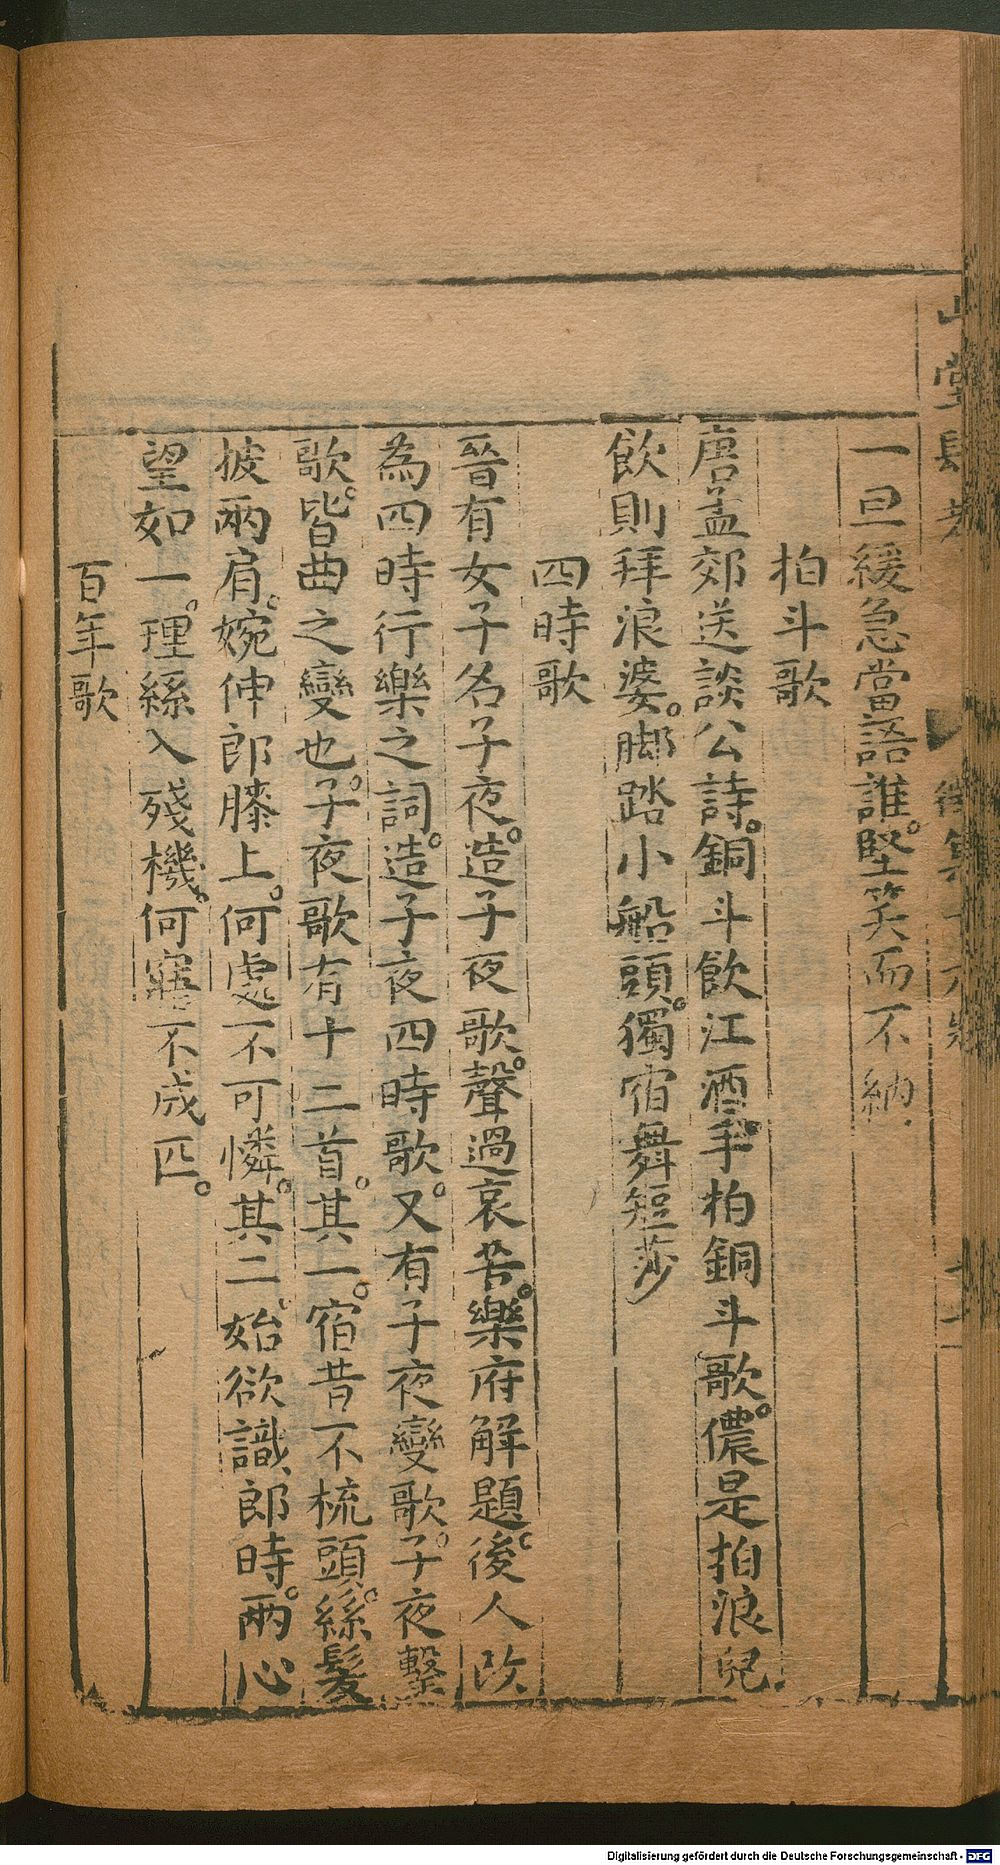 山堂肆考
徵集十六卷
十一
一旦緩急當語誰堅笑而不納
拍斗歌
唐孟郊送談公詩銅斗飲江酒手拍銅斗歌儂是拍浪兒
飲則拜浪婆脚踏小船頭獨宿舞短莎
四時歌
晉有女子名子夜造子夜歌聲過哀苦樂府解題後人改
為四時行樂之詞造子夜四時歌又有子夜變歌子夜警
歌皆曲之變也子夜歌有十二首其一宿昔不梳頭絲髮
披兩肩婉伸郎膝上何處不可憐其二始欲識郎時兩心
望如一理絲入殘機何寤不成匹
百年歌
Digitalisierung gefördert durch die Deutsche Forschungsgemeinschaft - DFG